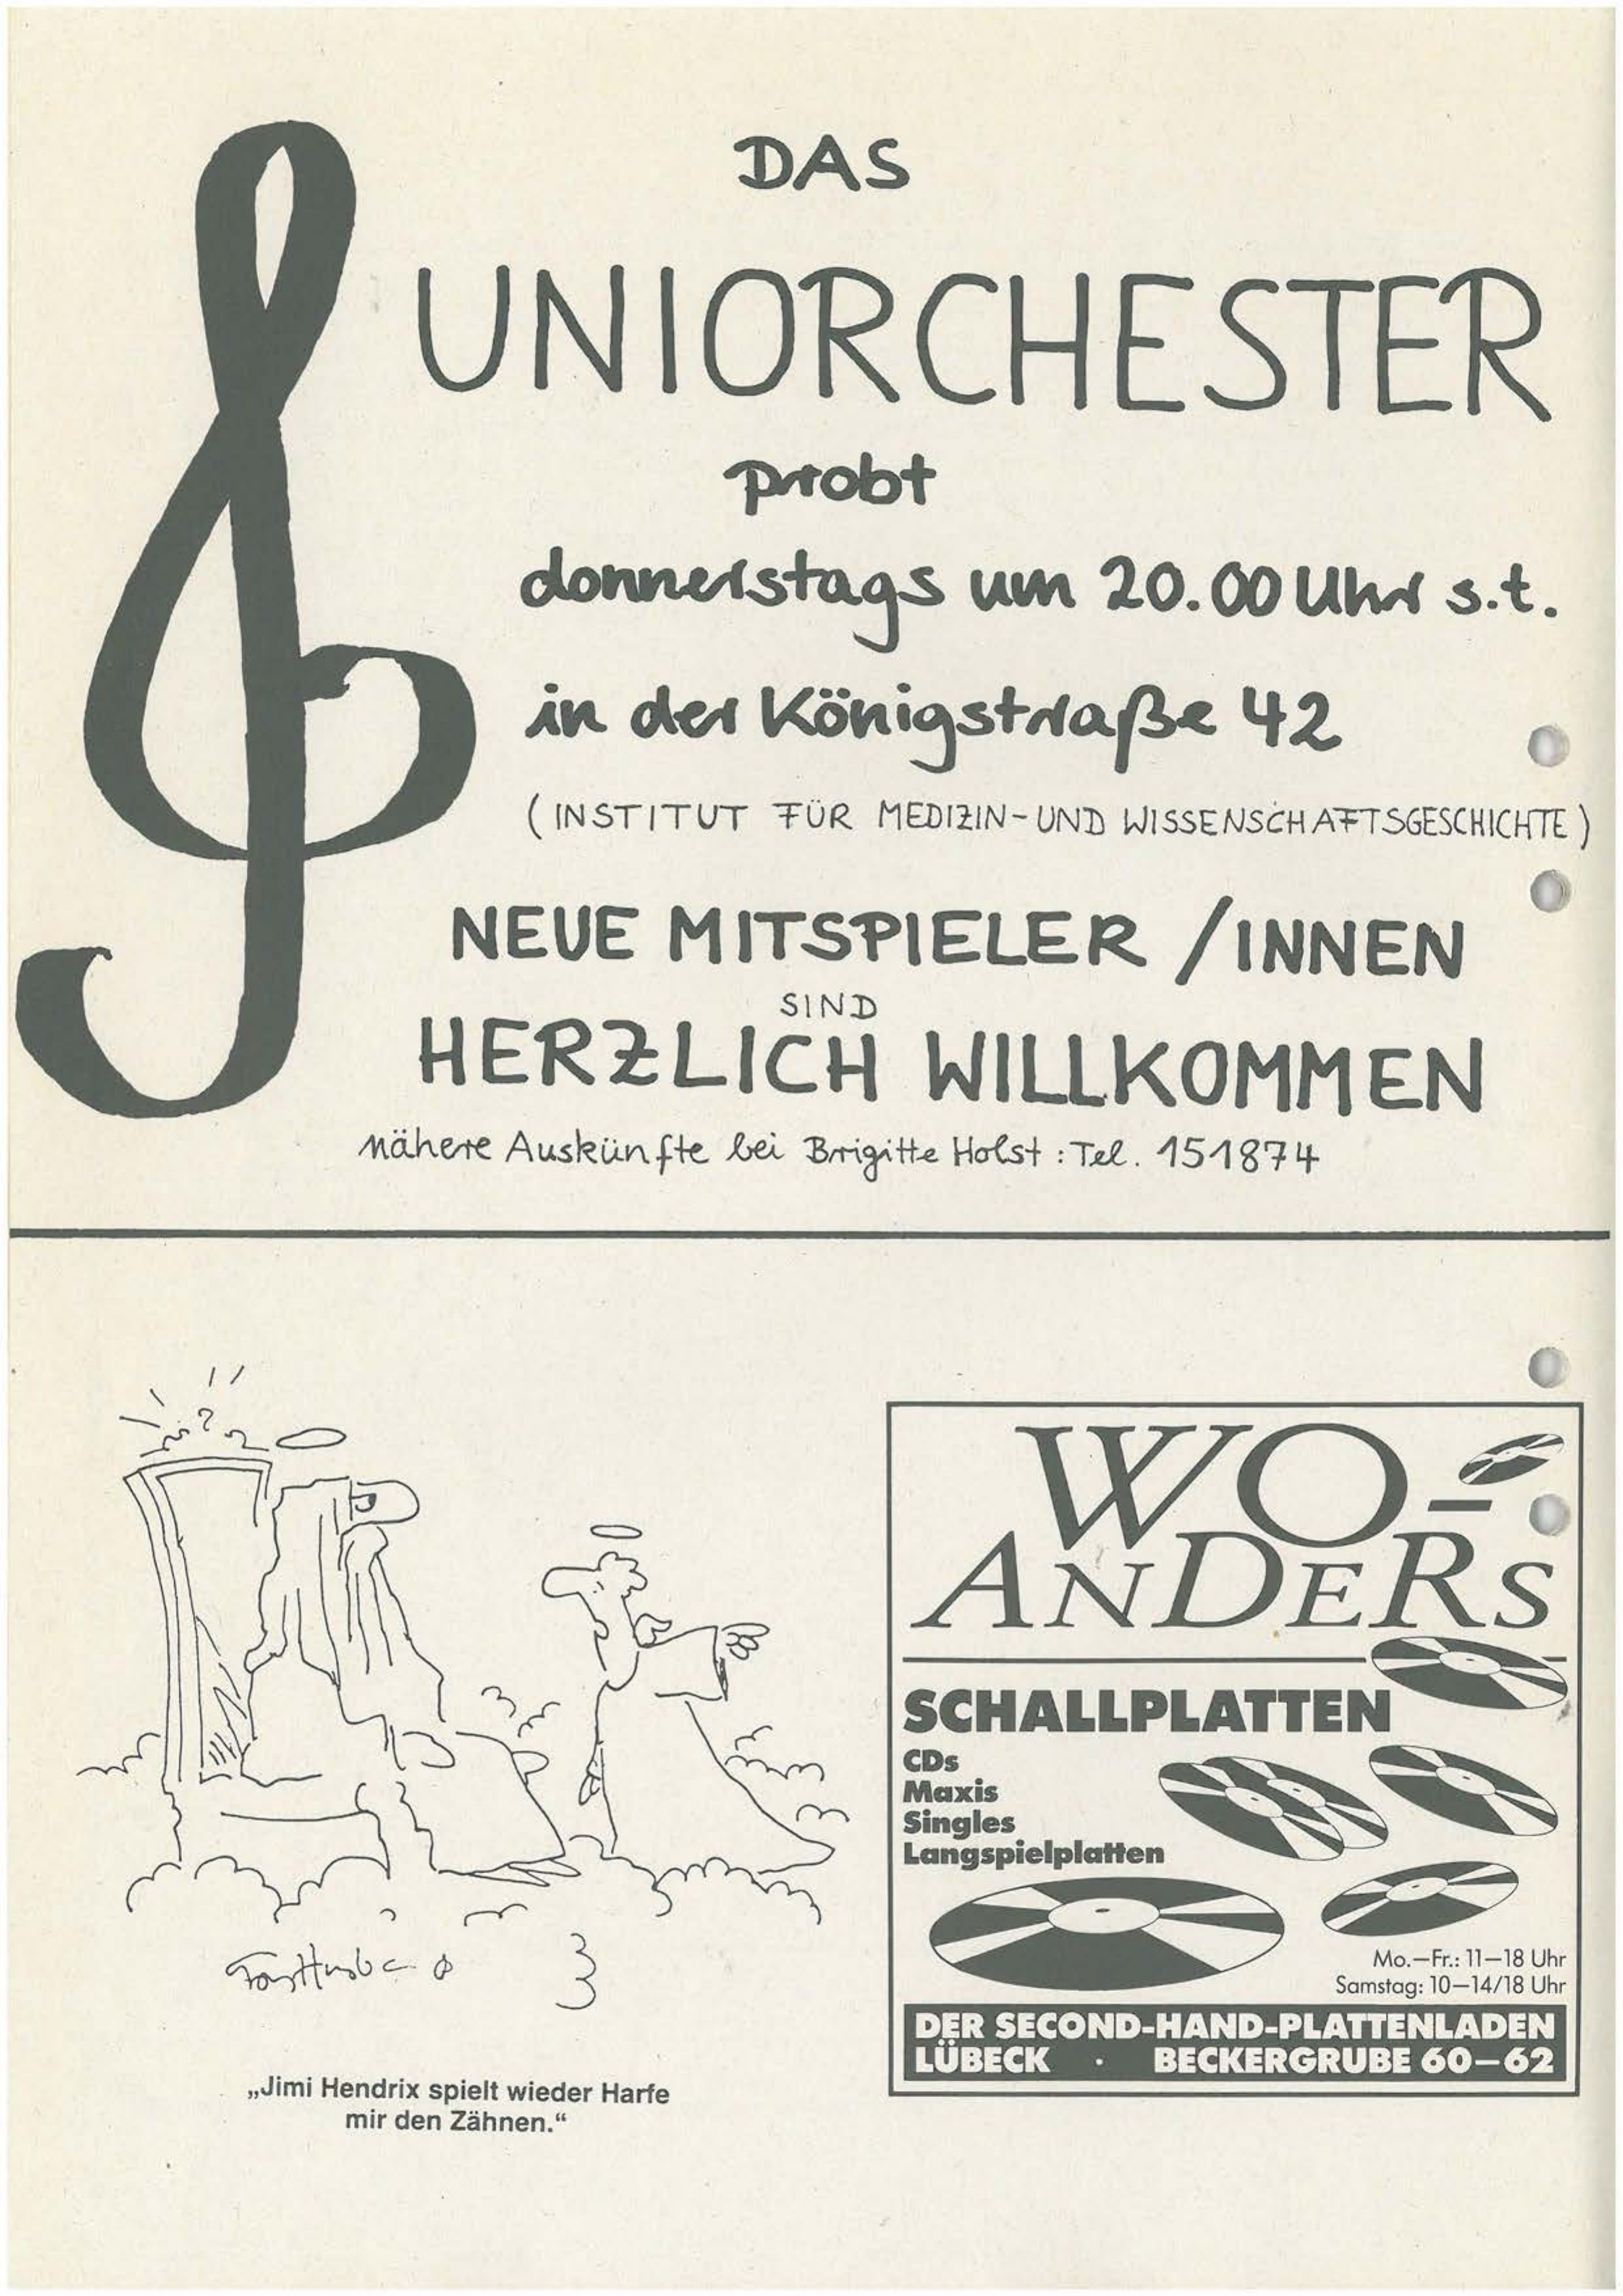 DAS
UNIORCHESTER
probt
donnerstags um 20.00 Uhr s.t.
in der Königstraße 42
(INSTITUT FÜR MEDIZIN-UND WISSENSCHAFTSGESCHICHTE)
NEUE MITSPIELER /INNEN
SIND
HERZLICH WILLKOMMEN
nähere Auskünfte bei Brigitte Holst : Tel. 151874
„Jimi Hendrix spielt wieder Harfe
mir den Zähnen.“
WO-
ANDERS
SCHALLPLATTEN
CDs
Maxis
Singles
Langspielplatten
Mo.–Fr.: 11–18 Uhr
Samstag: 10–14/18 Uhr
DER SECOND-HAND-PLATTENLADEN
LÜBECK · BECKERGRUBE 60–62